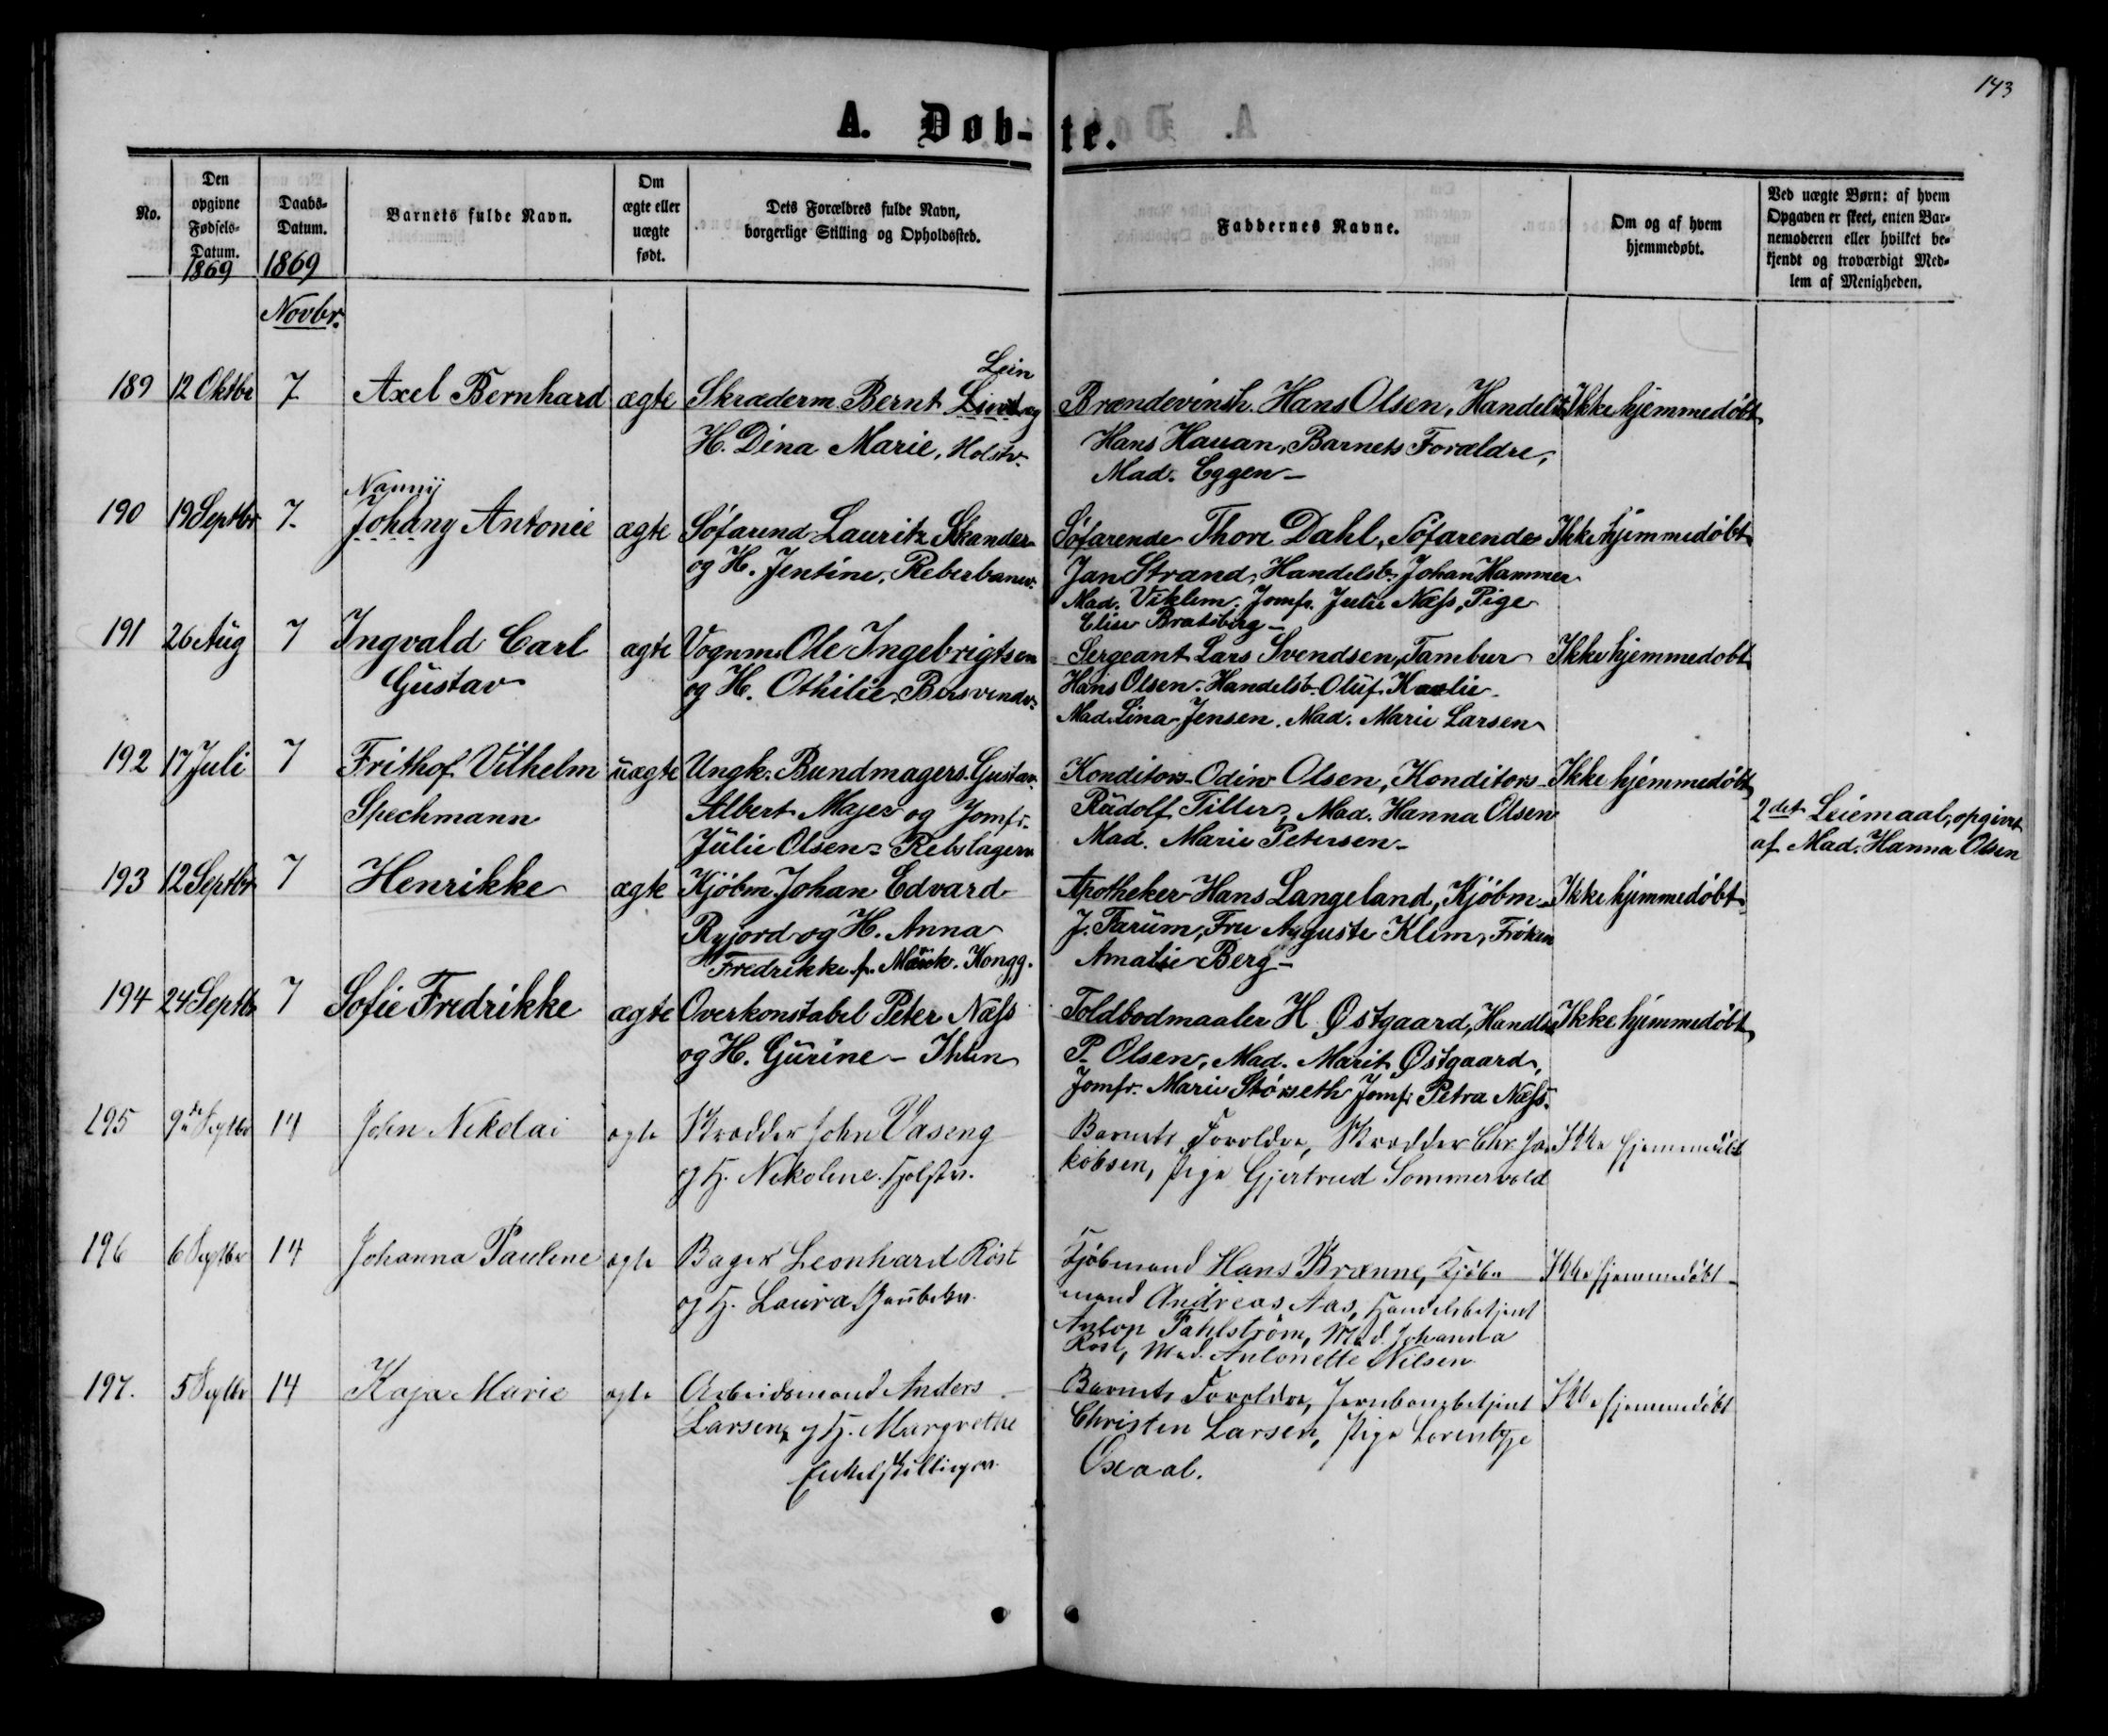 143
A. Døb-te.
No.
Den opgivne Fødsels-Datum.
1869
Daabs-Datum.
1869
Barnets fulde Navn.
Om ægte eller uægte født.
Dets Forældres fulde Navn, borgerlige Stilling og Opholdssted.
Faddernes Navne.
Om og af hvem hjemmedøbt.
Ved uægte Børn: af hvem Opgaven er skeet, enten Barnemoderen eller hvilket bekjendt og troværdigt Medlem af Menigheden.
Novbr.
Lein
189 12 Oktbr 7 Axel Bernhard ægte Skræderm. Bernt Lind og Brændevinsh. Hans Olsen, Handelsb. Ikke hjemmedøbt
H. Dina Marie, Holstv. Hans Hauan, Barnets Forældre,
Mad. Eggen –
Nannij
190 19 Septbr 7 Johany Antonie ægte Søfarend Lauritz Skander Søfarende Thore Dahl, Søfarende Ikke hjemmedøbt
og H. Jentine, Reberbanen. Jan Strand, Handelsb. Johan Hammer
Mad. Viklem, Jomfr. Julie Næss, Pige
Elise Bratsberg –
191 26 Aug 7 Ingvald Carl ægte Vognm. Ole Ingebrigtsen Sergeant Lars Svendsen, Tambur Ikke hjemmedøbt
Gustav og H. Othilie, Bersvendv. Hans Olsen, Handelsb. Oluf Kaalie
Mad. Lina Jensen, Mad. Marie Larsen
192 17 Juli 7 Frithof Vilhelm uægte Ungk. Bundmagers. Gustav Konditor Odin Olsen, Konditor Ikke hjemmedøbt
Spechmann Albert Majer og Jomfr. Rudolf Tiller, Mad. Hanna Olsen 2det Leiemaal, opgivet
Julie Olsen – Rebslagerv. Mad. Marie Petersen – af Mad. Hanna Olsen
193 12 Septbr 7 Henrikke ægte Kjøbm. Johan Edvard Apotheker Hans Langeland, Kjøbm. Ikke hjemmedøbt
Ryjord og H. Anna J. Farum, Fru Auguste Klem, Frøken
Fredrikke f. Mauk. Kongg. Amalie Berg –
194 24 Septbr 7 Sofie Fredrikke ægte Overkonstabel Peter Næss Toldbodmaaler H. Østgaard, Handelsb. Ikke hjemmedøbt
og H. Gurine – Ihlen P. Olsen, Mad. Marit Østgaard,
Jomfr. Marie Størseth Jomfr. Petra Næss.
195 9de Septbr 14 John Nikolai ægte Skrædder John Vaseng Barnets Forældre, Skrædder Chr. Ja- Ikke hjemmedøbt
og H. Nikoline. Holstv. kobsen, Pige Gjertrud Sommervold
196 6 Septbr 14 Johanna Pauline ægte Bager Leonhard Röst Kjøbmand Hans Brænne, Kjøb- Ikke hjemmedøbt
og H. Laura, Gaubekv. mand Andreas Aas, Handelsbetjent
Anton Fahlstrøm, Mad. Johanna
Röst, Mad. Antonette Nilsen
197. 5 Septbr 14 Kaja Marie ægte Arbeidsmand Anders Barnets Forældre, Jernbanebetjent Ikke hjemmedøbt
Larsen, og H. Margrethe Christen Larsen, Pige Lorentze
Enkelskillingsv. Oxaal.